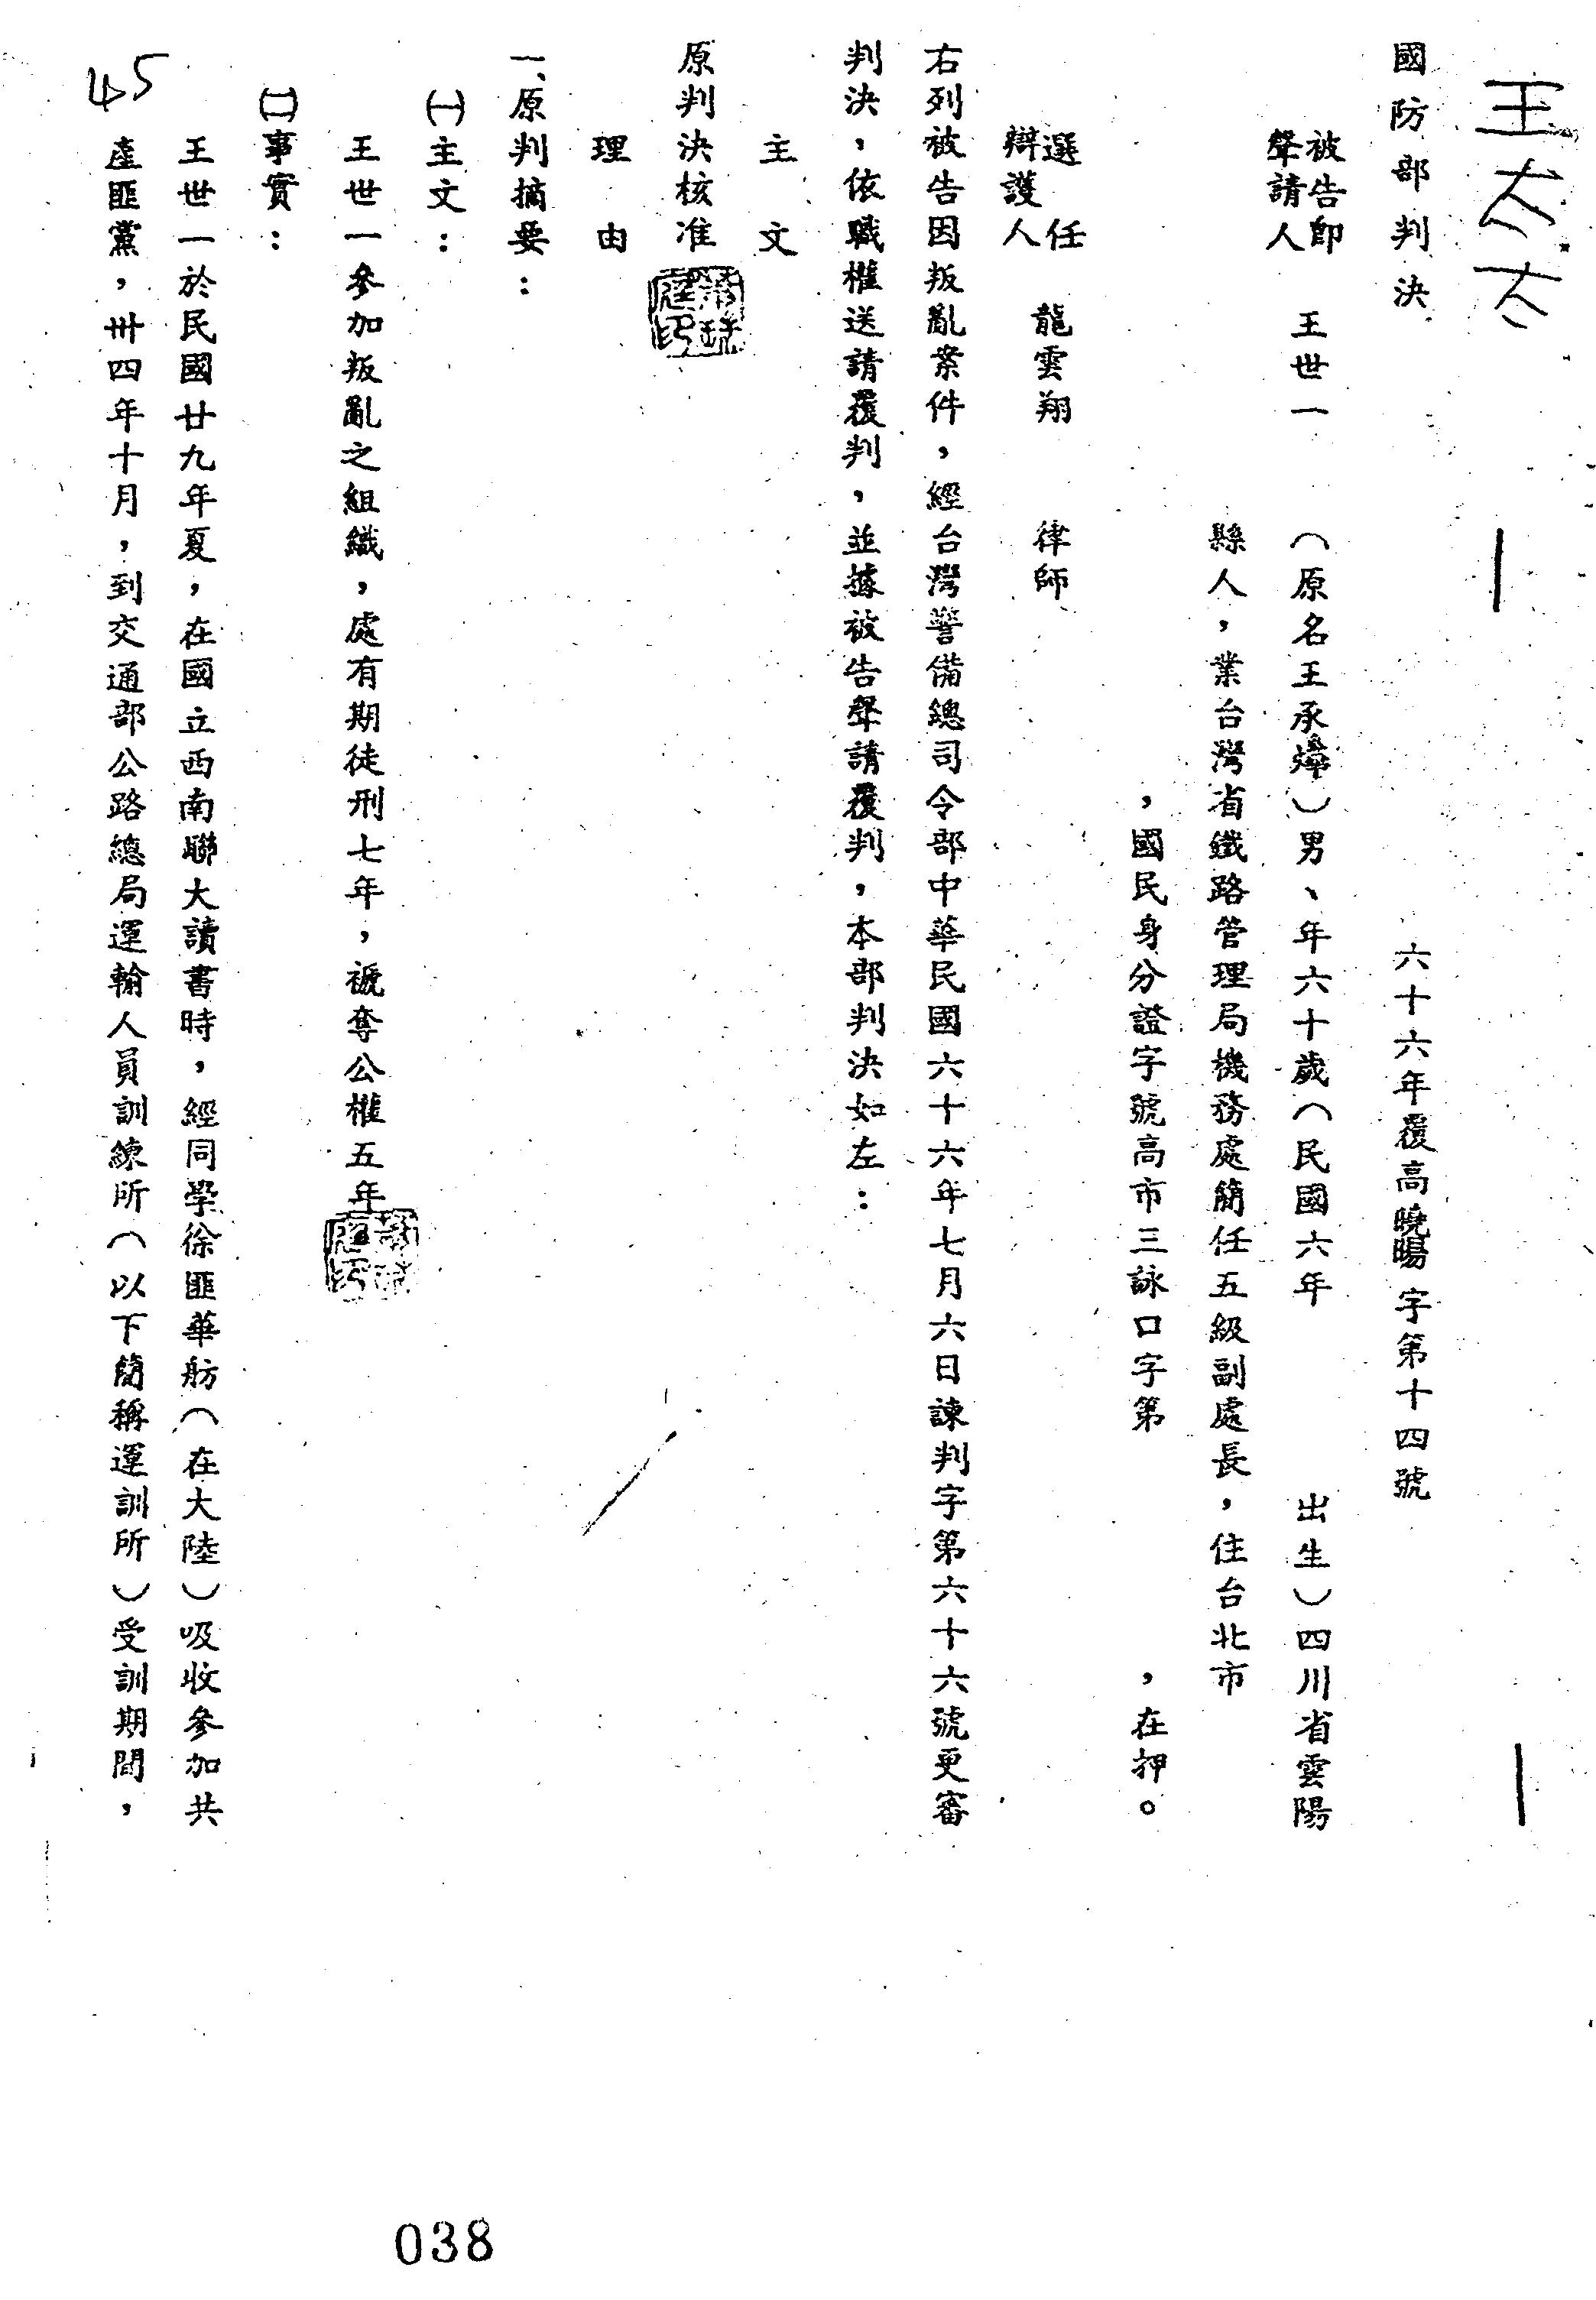 王太太
國防部判決
六十六年覆高曉暘字第十四號
被告即
聲請人
王世一
（原名王承）男、年六十歲（民國六年
出生）四川省雲陽
縣人，業台灣省鐵路管理局機務處簡任五級副處長，住台北市
，國民身分證字號高市三詠口字第
，在押。
選任
辯護人
龍雲翔
律師
右列被告因叛亂案件，經台灣警備總司令部中華民國六十六年七月六日諫判字第六十六號更審
判決，依職權送請覆判，並據被告聲請覆判，本部判決如左：
主文
原判決核准
理由
一、原判摘要：
㈠主文：
王世一參加叛亂之組織，處有期徒刑七年，褫奪公權五年
㈡事實：
王世一於民國廿九年夏，在國立西南聯大讀書時，經同學徐匪華舫（在大陸）吸收參加共
產匪黨，卅四年十月，到交通部公路總局運輸人員訓練所（以下簡稱運訓所）受訓期間，
45
038